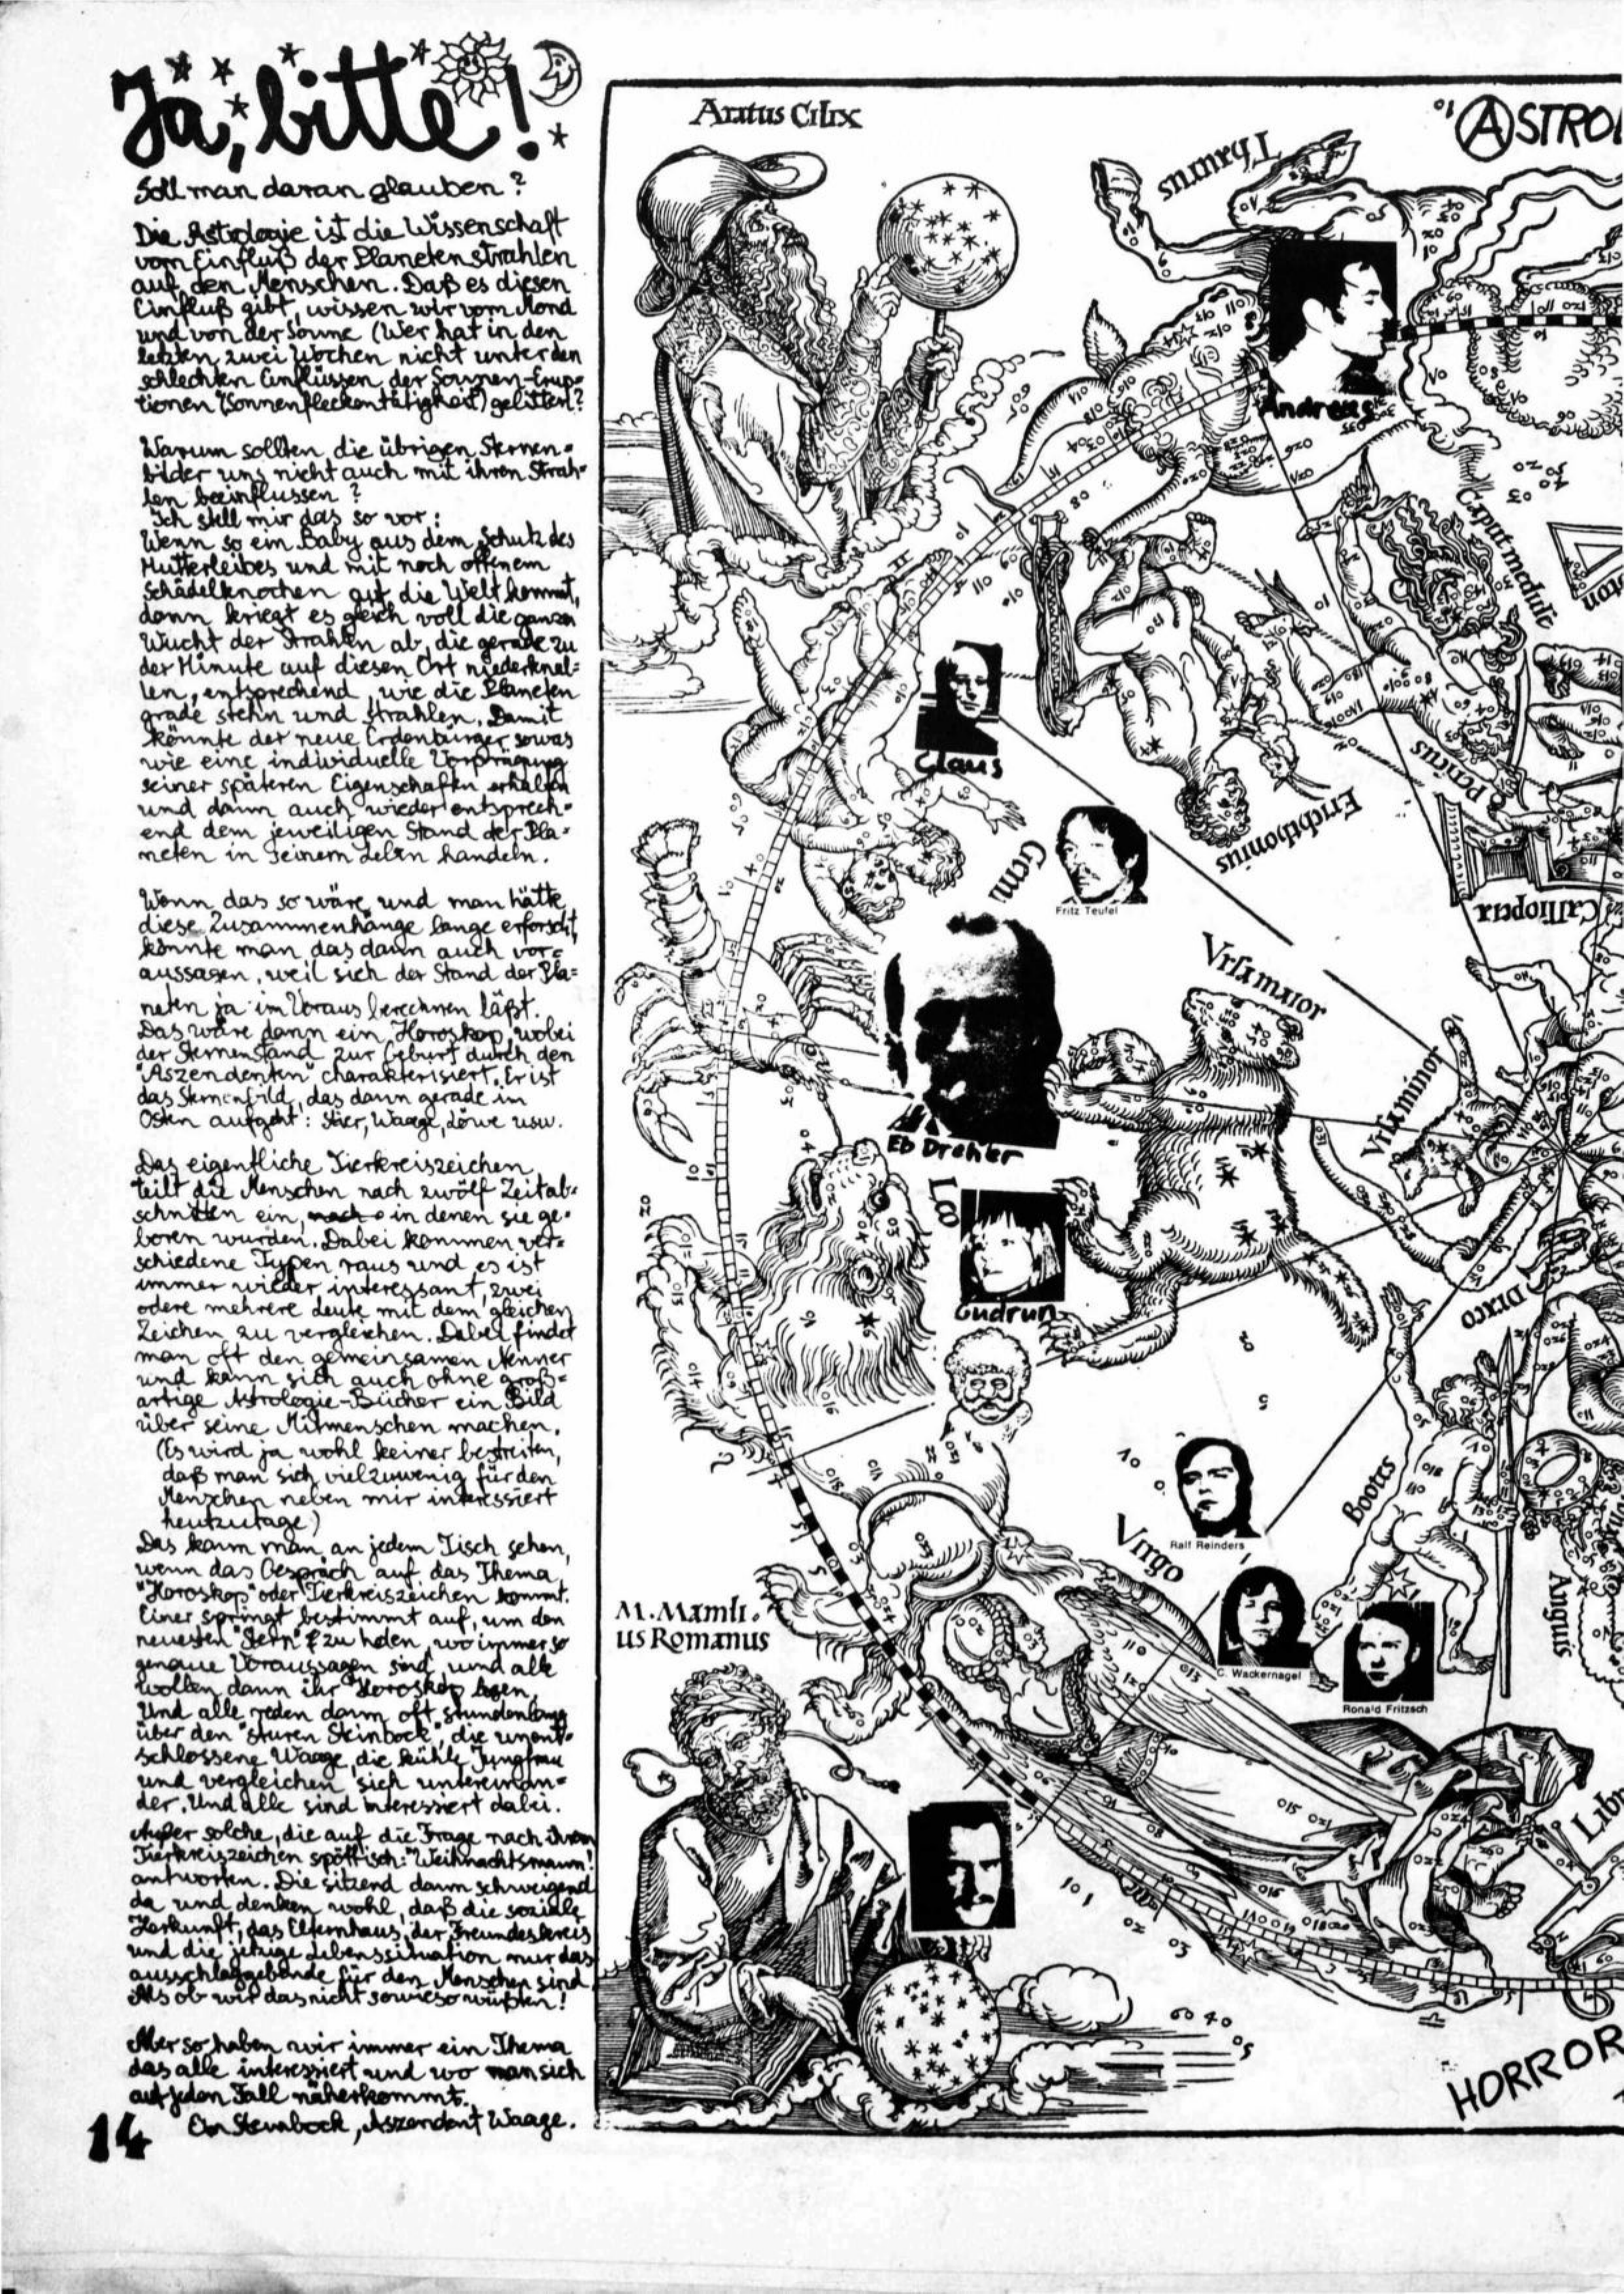 Ja, bitte!
Soll man daran glauben?
Die Astrologie ist die Wissenschaft
vom Einfluß der Planetenstrahlen
auf den Menschen. Daß es diesen
Einfluß gibt, wissen wir vom Mond
und von der Sonne (Wer hat in den
letzten zwei Wochen nicht unter den
schlechten Einflüssen der Sonnen-Erup=
tionen (Sonnenfleckentätigkeit) gelitten?
Warum sollten die übrigen Sternen=
bilder uns nicht auch mit ihren Strah=
len beeinflussen?
Ich stell mir das so vor:
Wenn so ein Baby aus dem Schutz des
Mutterleibes und mit noch offenem
Schädelknochen auf die Welt kommt,
dann kriegt es gleich voll die ganze
Wucht der Strahlen ab, die gerade zu
der Minute auf diesen Ort niederknal=
len, entsprechend, wie die Planeten
grade stehn und strahlen. Damit
könnte der neue Erdenbürger sowas
wie eine individuelle Vorprägung
seiner späteren Eigenschaften erhalten
und dann auch wieder entsprech=
end dem jeweiligen Stand der Pla=
neten in seinem Leben handeln.
Wenn das so wäre und man hätte
diese Zusammenhänge lange erforscht,
könnte man das dann auch vor=
aussagen, weil sich der Stand der Pla=
neten ja im Voraus berechnen läßt.
Das wäre dann ein Horoskop, wobei
der Sternenstand zur Geburt durch den
"Aszendenten" charakterisiert. Er ist
das Sternenbild, das dann gerade im
Osten aufgeht: Stier, Waage, Löwe usw.
Das eigentliche Tierkreiszeichen
teilt die Menschen nach zwölf Zeitab=
schnitten ein, in denen sie ge=
boren wurden. Dabei kommen ver=
schiedene Typen raus und es ist
immer wieder interessant, zwei
odere mehrere Leute mit dem gleichen
Zeichen zu vergleichen. Dabei findet
man oft den gemeinsamen Nenner
und kann sich auch ohne groß=
artige Astrologie-Bücher ein Bild
über seine Mitmenschen machen.
(Es wird ja wohl keiner bestreiten,
daß man sich viel zuwenig für den
Menschen neben mir interessiert
heutzutage)
Das kann man an jedem Tisch sehen,
wenn das Gespräch auf das Thema
"Horoskop" oder Tierkreiszeichen kommt.
Einer springt bestimmt auf, um den
neuesten "Stern" zu holen, wo immer so
genaue Voraussagen sind, und alle
wollen dann ihr Horoskop lesen.
Und alle reden dann oft stundenlang
über den "sturen Steinbock", die unent=
schlossene Waage, die kühle Jungfrau
und vergleichen sich untereinan=
der. Und alle sind interessiert dabei.
Außer solche, die auf die Frage nach ihrem
Tierkreiszeichen spöttisch: "Weihnachtsmann!"
antworten. Die sitzend dann schweigend
da und denken wohl, daß die soziale
Herkunft, das Elternhaus, der Freundeskreis
und die jetzige Lebenssituation nur das
ausschlaggebende für den Menschen sind
Als ob wir das nicht sowieso wüßten!
Aber so haben wir immer ein Thema
das alle interessiert und wo man sich
auf jeden Fall näherkommt.
Ein Steinbock, Aszendent Waage.
14
Aratus Cilix
ASTRO
Taurus
Andreas
Caput meduse
Claus
Perseus
Erichthonius
Gemi
Fritz Teufel
Calliopeia
Vrsa maior
Vrsa minor
Eb Dreher
Leo
Gudrun
Draco
Bootes
Ralf Reinders
Virgo
Anguis
M. Manili
us Romanus
C. Wackernagel
Ronald Fritzsch
Libr
HORROR